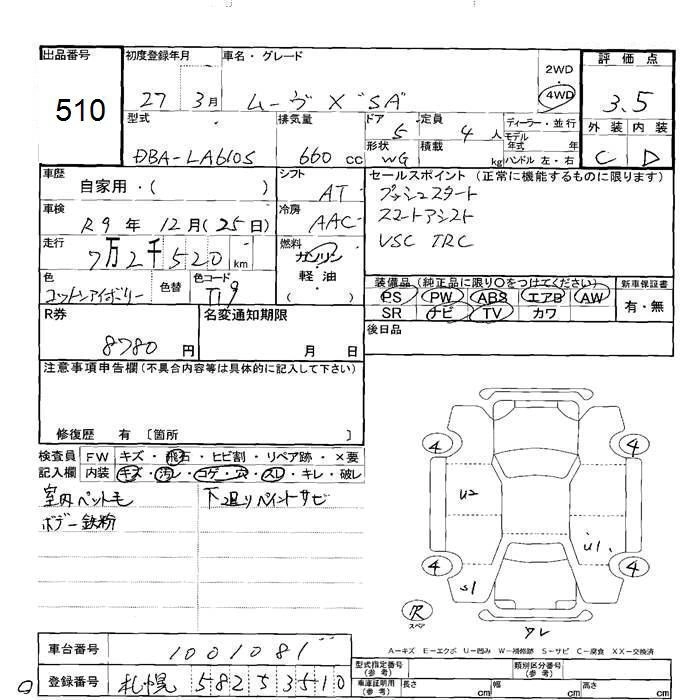 出品番号 510
初度登録年月 27 3月
車名・グレード ムーヴ X "SA"
2WD・4WD
評価点 3.5
外装 C 内装 D
型式 DBA-LA610S
排気量 660 cc
ドア 5
形状 WG
定員 4 人
積載 kg
ディーラー・並行
モデル年式 年
ハンドル 左・右
車歴 自家用・( )
シフト AT
車検 R9年 12月(25日)
冷房 AAC
走行 7万2千520 km
燃料 ガソリン・軽油 ( )
色 コットンアイボリー
色替
色コード T19
セールスポイント (正常に機能するものに限ります)
プッシュスタート
スマートアシスト
VSC TRC
装備品(純正品に限り○をつけてください)
PS PW ABS エアB AW
SR ナビ TV カワ
新車保証書 有・無
後日品
R券 8780 円
名変通知期限 月 日
注意事項申告欄(不具合内容等は具体的に記入して下さい)
修復歴 有 〔箇所 〕
検査員記入欄
FW キズ・飛石・ヒビ割・リペア跡・×要
内装 キズ・汚レ・コゲ・穴・スレ・キレ・破レ
室内ペット毛
ボデー鉄粉
下廻りペイントサビ
4 4
U2
U1
4 4
S1
スペア
ワレ
A-キズ E-エクボ U-凹み W-補修跡 S-サビ C-腐食 XX-交換済
車台番号 1001081
登録番号 札幌 582 5 3510
型式指定番号(参考)
類別区分番号(参考)
車庫証明用(参考) 長さ cm 幅 cm 高さ cm